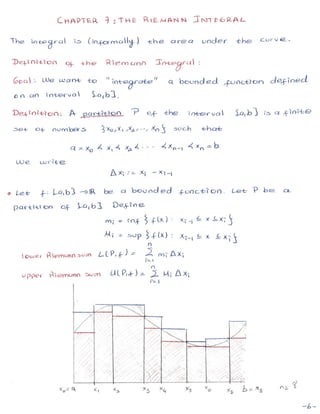 CHAPTER 7: THE RIEMANN INTEGRAL
The integral is (informally) the area under the curve.
Definition of the Riemann Integral:
Goal: We want to "integrate" a bounded function defined
on an interval [a,b].
Definition: A partition P of the interval [a,b] is a finite
set of numbers {x₀, x₁, x₂, ... xₙ} such that
a = x₀ < x₁ < x₂ < ... < xₙ₋₁ < xₙ = b
We write
Δxᵢ := xᵢ - xᵢ₋₁
• Let f: [a,b] → ℝ be a bounded function. Let P be a
partition of [a,b]. Define
mᵢ = inf { f(x) : xᵢ₋₁ ≤ x ≤ xᵢ }
Mᵢ = sup { f(x) : xᵢ₋₁ ≤ x ≤ xᵢ }
lower Riemann sum L(P,f) = Σᵢ₌₁ⁿ mᵢ Δxᵢ
upper Riemann sum U(P,f) = Σᵢ₌₁ⁿ Mᵢ Δxᵢ
x₀=a x₁ x₂ x₃ x₄ x₅ x₆ x₇ b=x₈
-6-